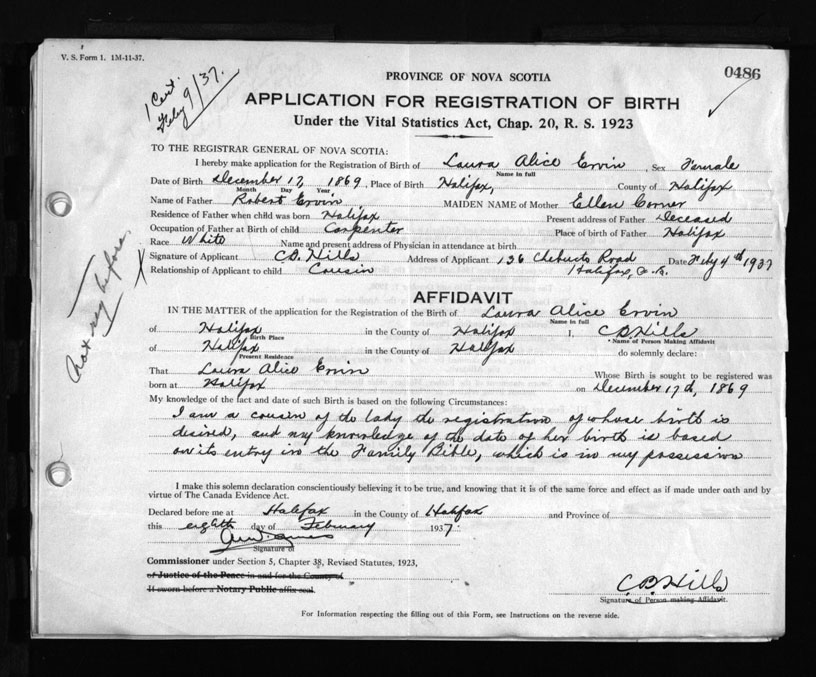 V. S. Form 1. 1M-11-37.
0486
1 Cert.
Feby 9/37.
PROVINCE OF NOVA SCOTIA
APPLICATION FOR REGISTRATION OF BIRTH
Under the Vital Statistics Act, Chap. 20, R. S. 1923
TO THE REGISTRAR GENERAL OF NOVA SCOTIA:
I hereby make application for the Registration of Birth of Laura Alice Ervin, Sex Female
Name in full
Date of Birth December 17, 1869, Place of Birth Halifax, County of Halifax
Month Day Year,
Name of Father Robert Ervin MAIDEN NAME of Mother Ellen Corner
Residence of Father when child was born Halifax Present address of Father Deceased
Occupation of Father at Birth of child Carpenter Place of birth of Father Halifax
Race White Name and present address of Physician in attendance at birth
Signature of Applicant C.B. Hills Address of Applicant 136 Chebucto Road Date Feby 4th 1937
Relationship of Applicant to child Cousin Halifax, N.S.
Not reg before
X
AFFIDAVIT
IN THE MATTER of the application for the Registration of the Birth of Laura Alice Ervin
Name in full
of Halifax in the County of Halifax I, C B Hills
Birth Place * Name of Person Making Affidavit
of Halifax in the County of Halifax do solemnly declare:
Present Residence
That Laura Alice Ervin Whose Birth is sought to be registered was
born at Halifax on December 17th, 1869
My knowledge of the fact and date of such Birth is based on the following Circumstances:
I am a cousin of the lady the registration of whose birth is
desired, and my knowledge of the date of her birth is based
on its entry in the Family Bible, which is in my possession
I make this solemn declaration conscientiously believing it to be true, and knowing that it is of the same force and effect as if made under oath and by
virtue of The Canada Evidence Act.
Declared before me at Halifax in the County of Halifax and Province of
this eighth day of February 1937:
Signature of
Commissioner under Section 5, Chapter 38, Revised Statutes, 1923,
of Justice of the Peace in and for the County of
If sworn before a Notary Public affix seal.
C B Hills
Signature of Person making Affidavit.
For Information respecting the filling out of this Form, see Instructions on the reverse side.